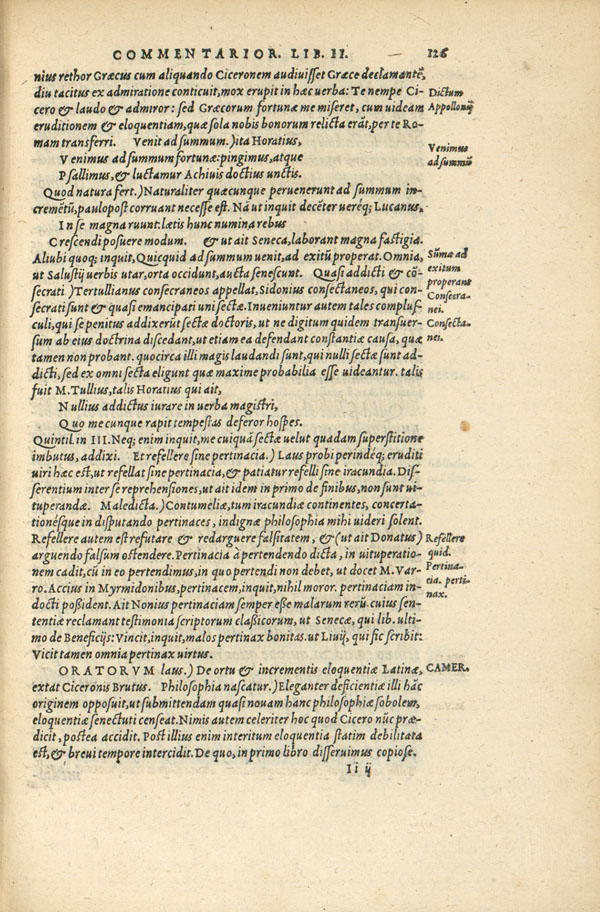 COMMENTARIOR. LIB. II. 126
nius rethor Græcus cum aliquando Ciceronem audiuisset Græce declamantẽ,
diu tacitus ex admiratione conticuit, mox erupit in hæc uerba: Te nempe Ci-
cero & laudo & admiror: sed Græcorum fortunæ me miseret, cum uideam
eruditionem & eloquentiam, quæ sola nobis bonorum relicta erãt, per te Ro-
mam transferri. Venit ad summum.) ita Horatius,
Venimus ad summum fortunæ: pingimus, atque
Psallimus, & luctamur Achiuis doctius unctis.
Quod natura fert.) Naturaliter quæcunque peruenerunt ad summum in-
cremẽtũ, paulopost corruant necesse est. Nã ut inquit decẽter uerèq; Lucanus,
In se magna ruunt: lætis hunc numina rebus
Crescendi posuere modum. & ut ait Seneca, laborant magna fastigia.
Aliubi quoq; inquit, Quicquid ad summum uenit, ad exitũ properat. Omnia,
ut Salustij uerbis utar, orta occidunt, aucta senescunt. Quasi addicti & cõ-
secrati.) Tertullianus consecraneos appellat, Sidonius consectaneos, qui con-
secrati sunt & quasi emancipati uni sectæ. Inueniuntur autem tales complus-
culi, qui se penitus addixerũt sectæ doctoris, ut ne digitum quidem transuer-
sum ab eius doctrina discedant, ut etiam ea defendant constantiæ causa, quæ
tamen non probant. quocirca illi magis laudandi sunt, qui nulli sectæ sunt ad-
dicti, sed ex omni secta eligunt quæ maxime probabilia esse uideantur. talis
fuit M. Tullius, talis Horatius qui ait,
Nullius addictus iurare in uerba magistri,
Quo me cunque rapit tempestas deferor hospes.
Quintil. in III. Neq; enim inquit, me cuiusquã sectæ uelut quadam superstitione
imbutus, addixi. Et refellere sine pertinacia.) Laus probi perindéq; eruditi
uiri hæc est, ut refellat sine pertinacia, & patiatur refelli sine iracundia. Dis-
serentium inter se reprehensiones, ut ait idem in primo de finibus, non sunt ui-
tuperandæ. Maledicta.) Contumeliæ, tum iracundiæ continentes, concerta-
tionésque in disputando pertinaces, indignæ philosophia mihi uideri solent.
Refellere autem est refutare & redarguere falsitatem, & (ut ait Donatus)
arguendo falsum ostendere. Pertinacia à pertendendo dicta, in uituperatio-
nem cadit, cũ in eo pertendimus, in quo pertendi non debet, ut docet M. Var-
ro. Accius in Myrmidonibus, pertinacem, inquit, nihil moror. pertinaciam in-
docti possident. Ait Nonius pertinaciam semper esse malarum rerũ. cuius sen-
tentiæ reclamant testimonia scriptorum classicorum, ut Senecæ, qui lib. ulti-
mo de Beneficijs: Vincit, inquit, malos pertinax bonitas. ut Liuij, qui sic scribit:
Vicit tamen omnia pertinax uirtus.
ORATORVM laus.) De ortu & incrementis eloquentiæ Latinæ,
extat Ciceronis Brutus. Philosophia nascatur.) Eleganter deficientiæ illi hãc
originem opposuit, ut submittendam quasi nouam hanc philosophiæ sobolem,
eloquentiæ senectuti censeat. Nimis autem celeriter hoc quod Cicero nũc præ-
dicit, postea accidit. Post illius enim interitum eloquentia statim debilitata
est, & breui tempore intercidit. De quo, in primo libro disseruimus copiose.
Ii ij
Dictum
Appollonij
Venimus
ad summũ
Sũma ad
exitum
properant
Consecra-
nei.
Consecta-
nei.
Refellere
quid.
Pertina-
cia. perti-
nax.
CAMER.